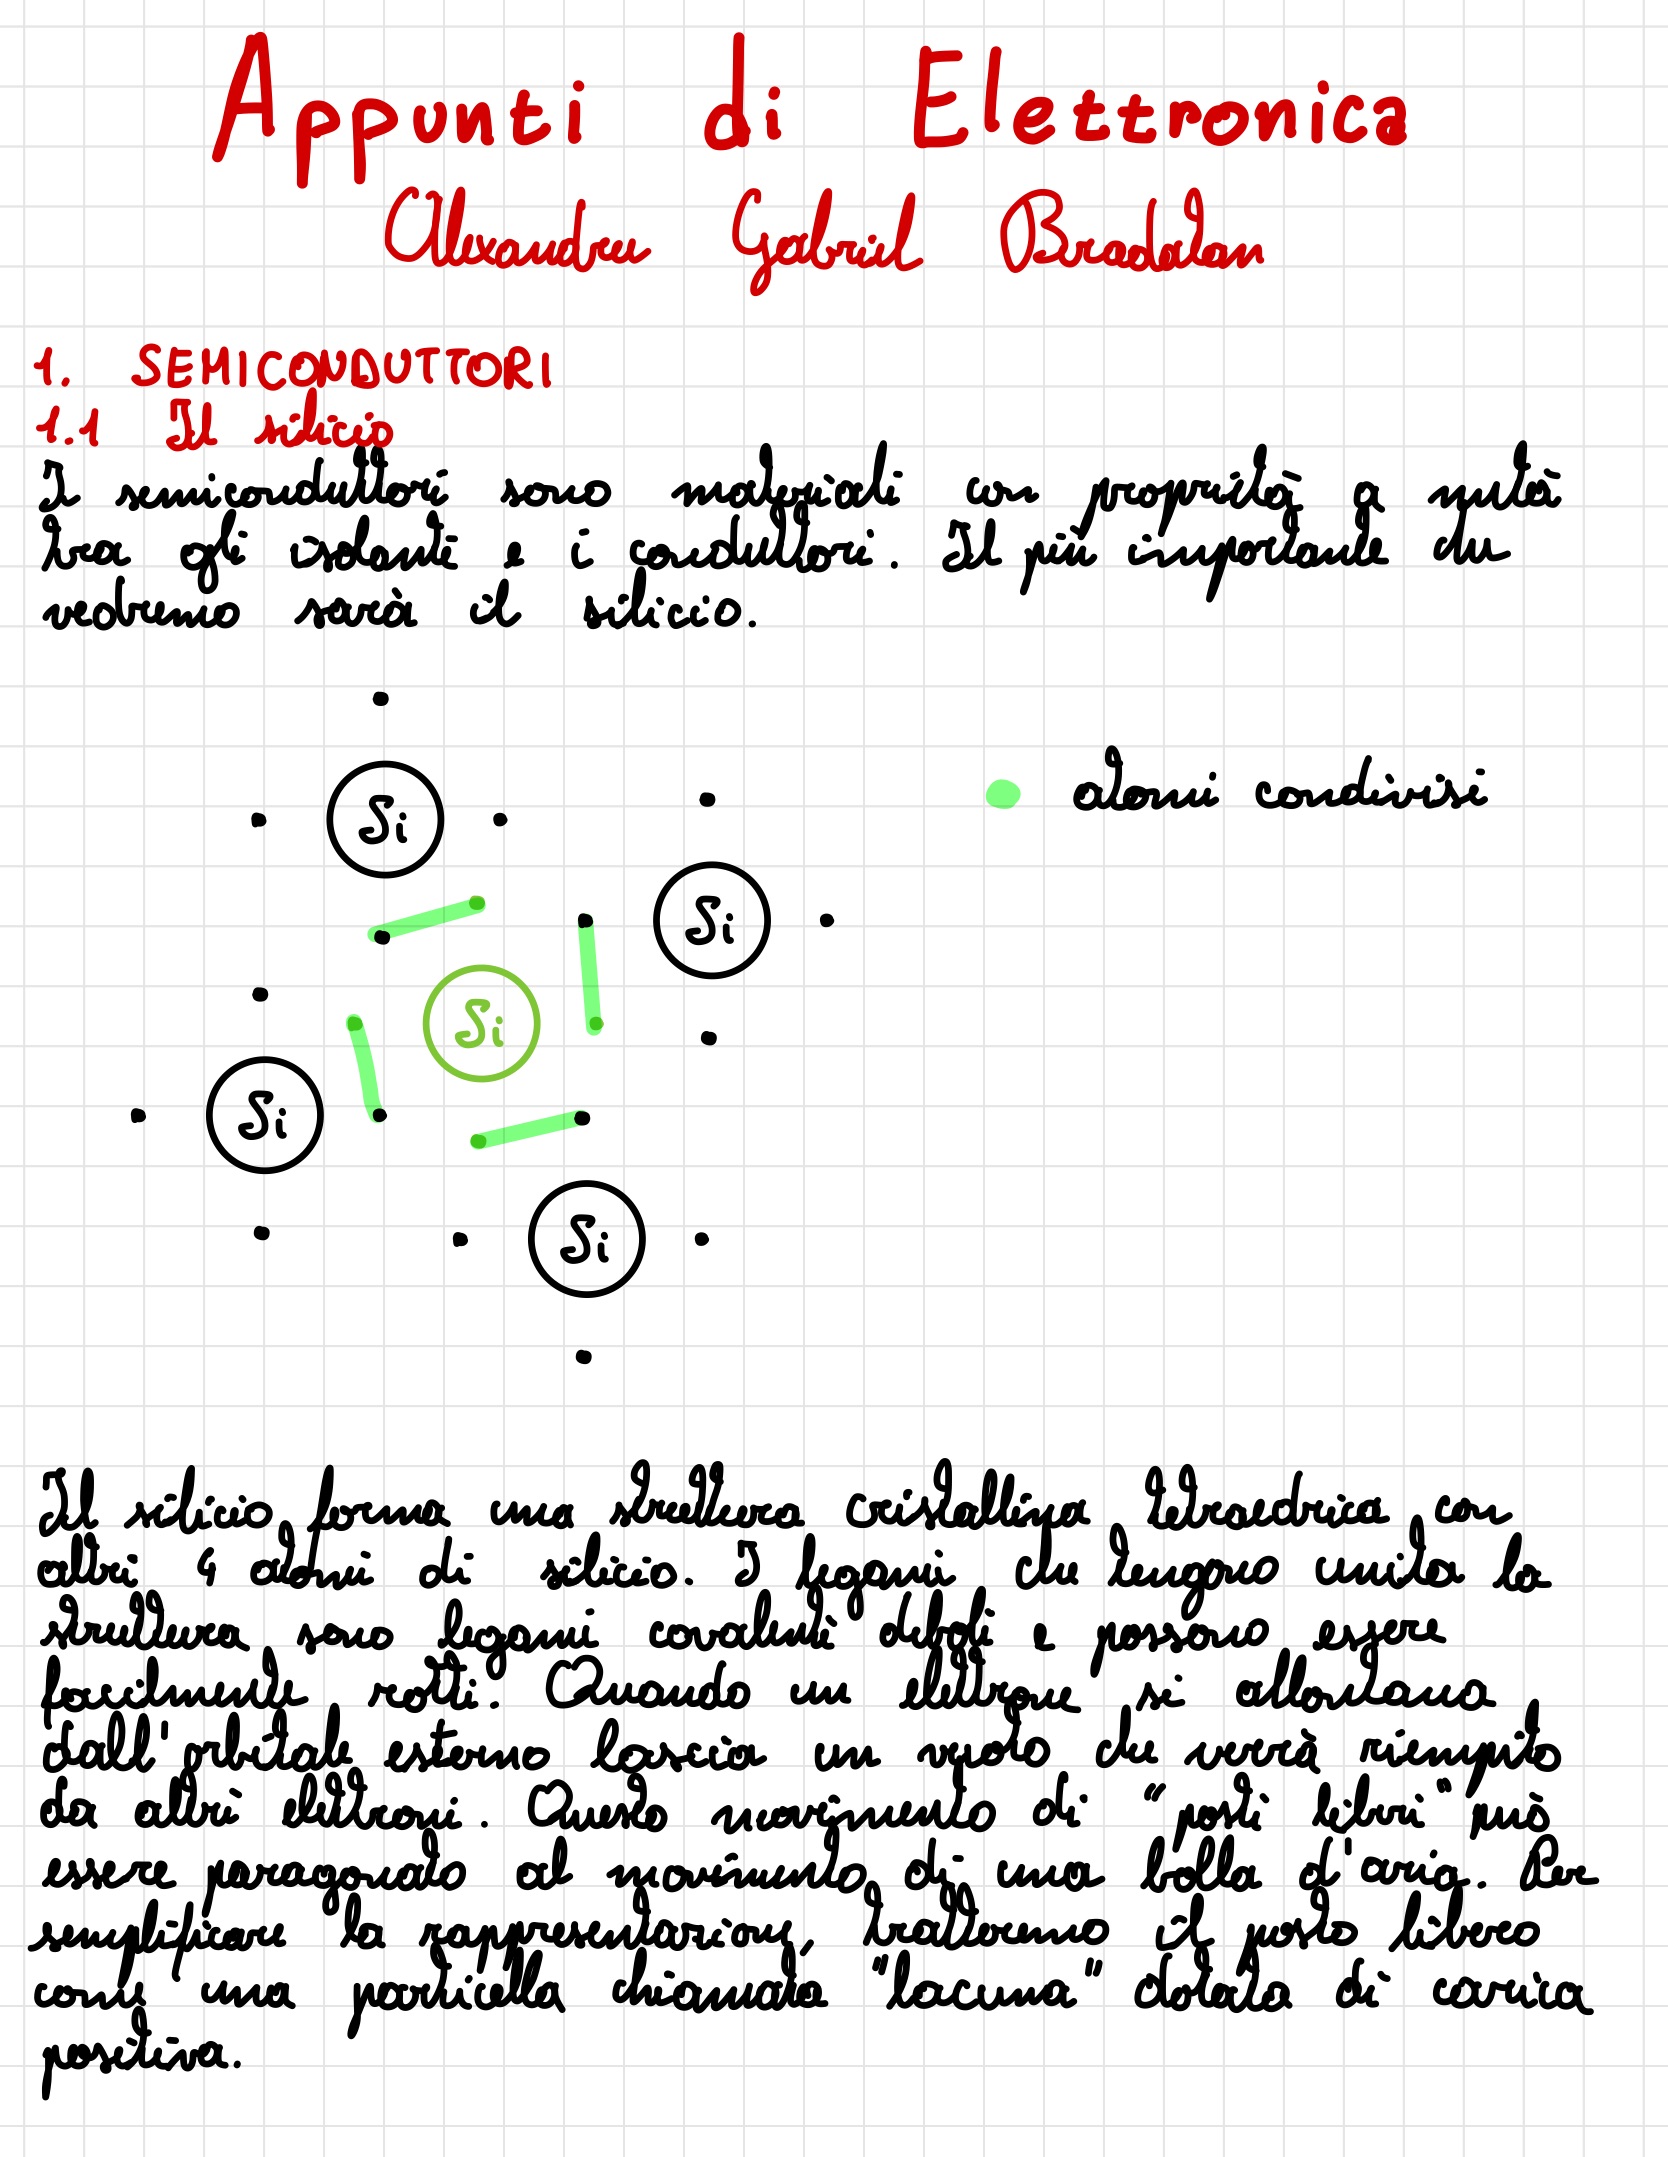 Appunti di Elettronica
Alexandru Gabriel Bradatan
1. SEMICONDUTTORI
1.1 Il silicio
I semiconduttori sono materiali con proprietà a metà
tra gli isolanti e i conduttori. Il più importante che
vedremo sarà il silicio.
Si
atomi condivisi
Si
Si
Si
Si
Il silicio forma una struttura cristallina tetraedrica con
altri 4 atomi di silicio. I legami che tengono unita la
struttura sono legami covalenti deboli e possono essere
facilmente rotti. Quando un elettrone si allontana
dall'orbitale esterno lascia un vuoto che verrà riempito
da altri elettroni. Questo movimento di "posti liberi" può
essere paragonato al movimento di una bolla d'aria. Per
semplificare la rappresentazione, tratteremo il posto libero
come una particella chiamata "lacuna" dotata di carica
positiva.